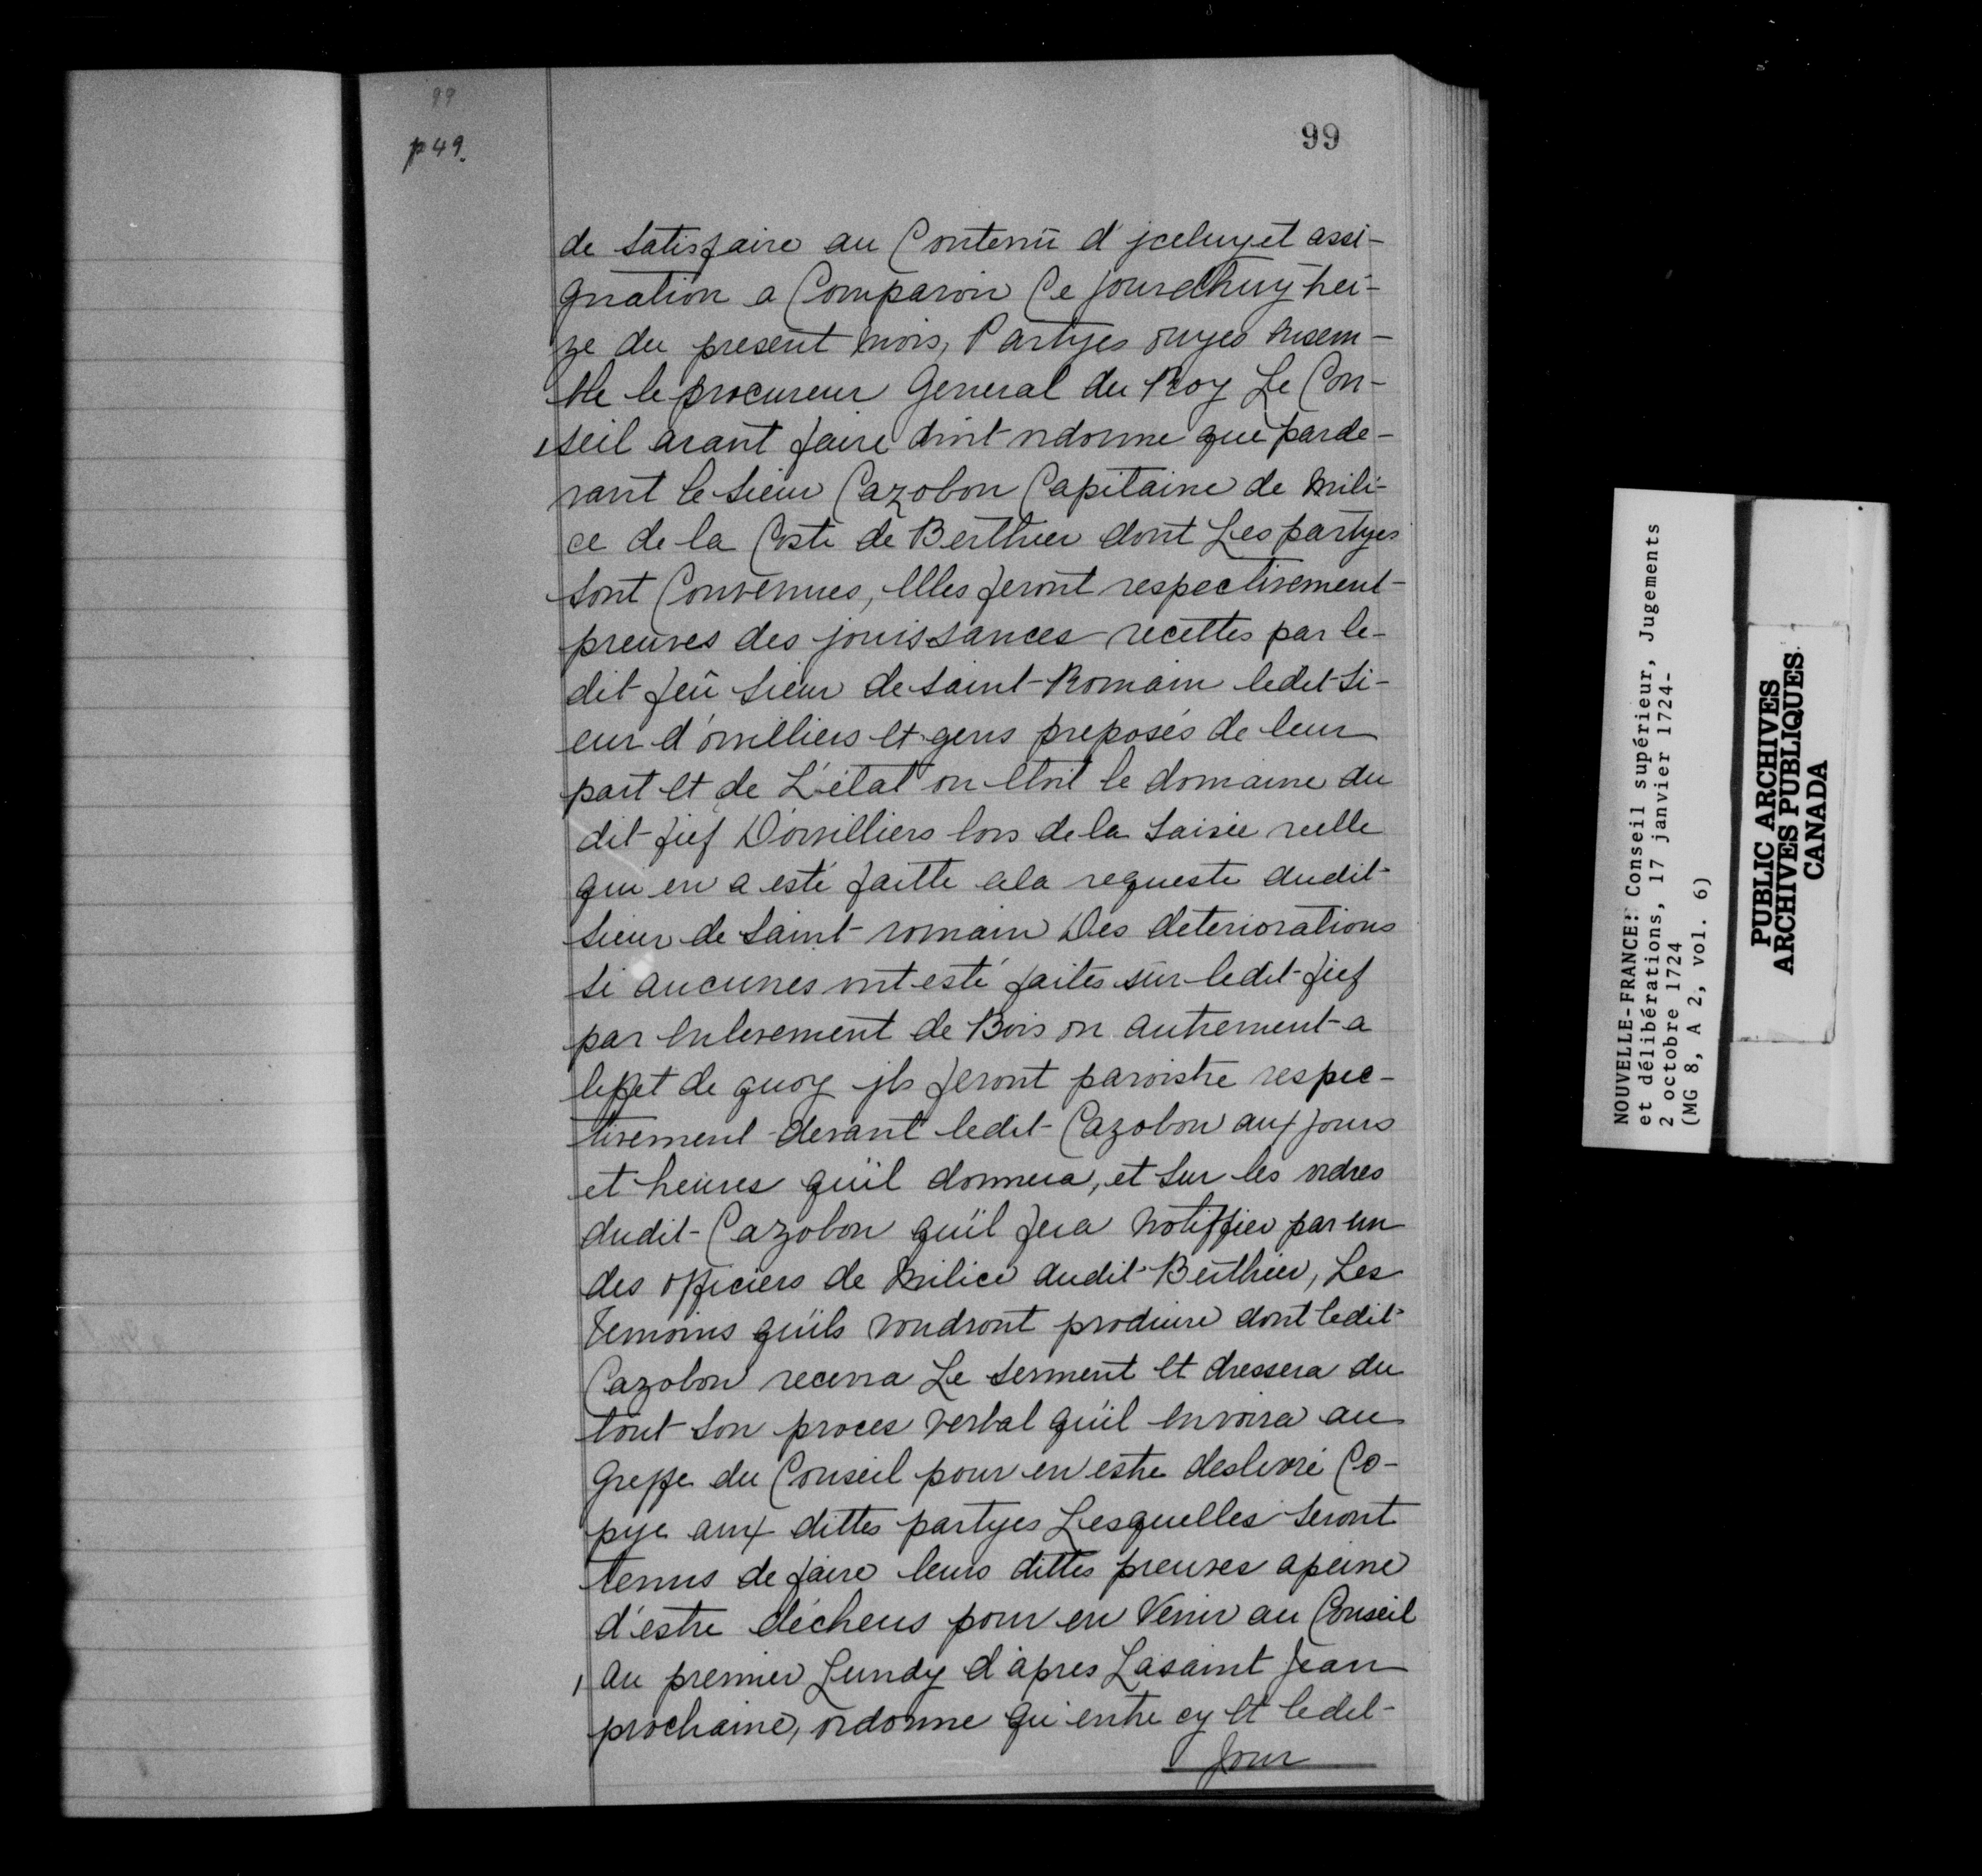 99
p 49.
99
de satisfaire au Contenû d'jceluy et assi-
gnation a Comparoir Ce jourdhuy trei-
ze du present mois, Partyes ouyes ensem-
ble le procureur General du Roy Le Con-
seil avant faire droit ordonne que parde-
vant le sieur Cazobon Capitaine de mili-
ce de la Coste de Berthier dont Les partyes
sont Convenues, Elles feront respectivement
preuves des jouissances recettes par le-
dit feû sieur de saint-Romain ledit-si-
eur d'orvilliers et gens preposés de leur
part et de L'état ou etoit le domaine du
dit fief D'orvilliers lors de la saisie reelle
qui en a esté faitte ala requeste dudit
sieur de saint-romain Des deteriorations
si aucunes ont esté faites sur ledit-fief
par enlevement de Bois ou autrement a
leffet de quoy jls feront paroistre respec-
tivement devant ledit-Cazobon aux jours
et heures qu'il donnera, et sur les ordres
dudit-Cazobon qu'il fera notiffier par un
des officiers de milice dudit Berthier, Les
Temoins qu'ils voudront produire dont ledit
Cazobon recevra Le serment et dressera du
tout son proces verbal qu'il envoira au
greffe du Conseil pour en estre deslivré Co-
pye aux dittes partyes Lesquelles seront
tenus de faire leurs dittes preuves apeine
d'estre décheus pour en Venir au Conseil
au premier Lundy d'apres Lasaint Jean
prochaine, ordonne qu'entre cy et ledit-
Jour
NOUVELLE-FRANCE: Conseil supérieur, Jugements
et délibérations, 17 janvier 1724-
2 octobre 1724
(MG 8, A 2, vol. 6)
PUBLIC ARCHIVES
ARCHIVES PUBLIQUES
CANADA